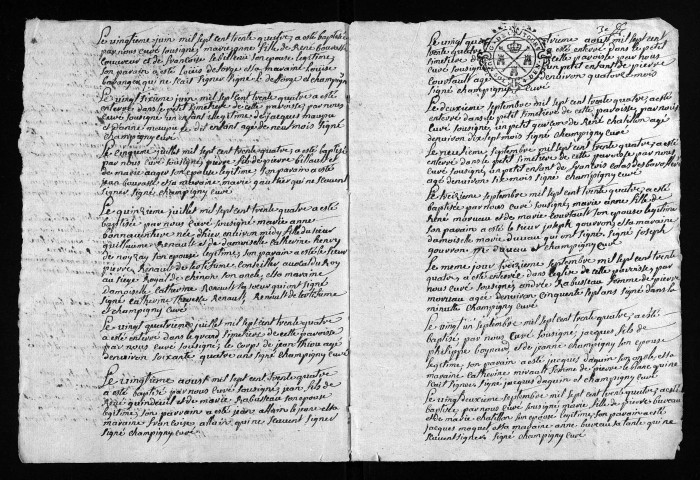 Le vingtieme juin mil sept cent trente quatre, a esté baptisée
par nous curé sousigné, marie anne fille de René
et de francoise son epouse legitime,
son parain a esté louis et sa maraine louise
qui ne scait signer signé et champigny
curé
Le vingt sixieme juin mil sept cent trente quatre a esté
enterré dans le petit simetiere de cette paroisse, par nous
curé sousigné un enfant legitime de jacques
et d'anne le dit enfant agé de neuf mois signé
champigny curé
Le cinquieme juillet mil sept cent trente quatre, a esté baptisé
par nous curé sousigné pierre fils de pierre
et de marie auger son epouse legitime, son parain a esté
jean et sa maraine marie gautier qui ne scavent
signer signé champigny curé
Le quinzieme juillet mil sept cent trente quatre a esté
baptisée par nous curé sousigné marie anne
née d'hier environ midy fille du sieur
guillaume Renault et de damoiselle catherine henry
de noyzay son epouse legitime, son parain a esté le sieur
pierre Renault conseiller avocat du Roy
au siege Royal de chinon son oncle, et sa maraine
damoiselle catherine Renault sa soeur qui ont signé
signé catherine Renault, Renault
et champigny curé
Le vingt quatrieme juillet mil sept cent trente quatre
a esté enterré dans le grand simetiere de cette paroisse
par nous curé sousigné, le corps de jean agé
d'environ soixante quatre ans signé champigny curé
Le vingtieme aoust mil sept cent trente quatre
a esté baptisé par nous curé sousigné, jean fils de
René et de marie Rabusteau son epouse
legitime, son parain a esté jean le jeune et sa
maraine francoise qui ne scavent signer
signé champigny curé
Le vingt aoust mil sept cent
trente quatre a esté enterré dans le petit
simetiere de cette paroisse par nous
curé sousigné un petit enfant de pierre
agé d'environ quatre mois
signé champigny curé
Le deuxieme septembre mil sept cent trente quatre, a esté
enterré dans le petit simetiere de cette paroisse, par nous
curé sousigné, un petit garcon de René chatillon agé
d'environ sept mois signé champigny curé
Le neufieme septembre mil sept cent trente quatre a esté
enterré dans le petit simetiere de cette paroisse par nous
curé sousigné, un petit enfant de francois
agé d'environ six mois signé champigny curé
Le treizieme septembre mil sept cent trente quatre, a esté
baptisée par nous curé sousigné, marie anne fille de
René moreau et de marie son epouse legitime
son parain a esté le sieur joseph gourron, et sa maraine
damoiselle marie qui ont signé, signé joseph
gourron, m. et champigny curé
Le meme jour treizieme septembre mil sept cent trente
quatre, a esté enterrée dans l'eglise de cette paroisse, par
nous curé sousigné, andrée Rabusteau femme de pierre
moreau agée d'environ cinquante sept ans signé dans la
minutte champigny curé
Le vingt un septembre mil sept cent trente quatre, a esté
baptisé par nous curé sousigné, jacques fils de
philippe et de jeanne champigny son epouse
legitime, son parain a esté jacques daguin son oncle, et sa
maraine catherine mirault femme de pierre le blanc qui ne
scait signer signé jacques daguin et champigny curé
Le vingt deuxieme septembre mil sept cent trente quatre, a esté
baptisée par nous curé sousigné marie fille de pierre bureau
et de marie chatillon son epouse legitime, son parain a esté
jacques et sa maraine anne bureau sa tante qui ne
scavent signer signé champigny curé